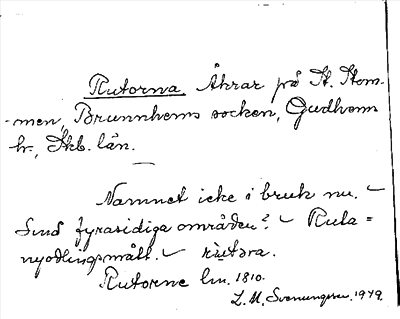 Rutorna, Åkrar på St. Stom-
-men, Brunnhems socken, Gudhems
hr., Skb. län.
Namnet icke i bruk nu. –
Små fyrasidiga områden? – Ruta =
nyodlingsmått. – rùtəra.
Rutorne lm. 1810.
L. M. Svenungsson. 1949.